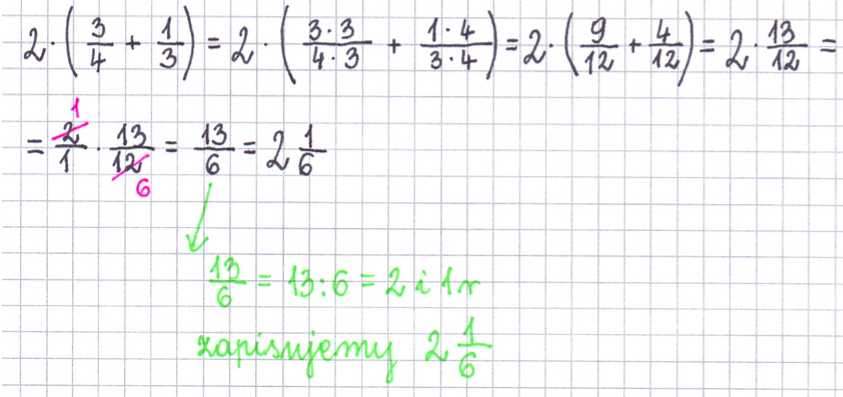 2 · (3/4 + 1/3) = 2 · (3·3/4·3 + 1·4/3·4) = 2 · (9/12 + 4/12) = 2 · 13/12 =
1
= 2/1 · 13/12 = 13/6 = 2 1/6
6
13/6 = 13:6 = 2 i 1 r
zapisujemy 2 1/6